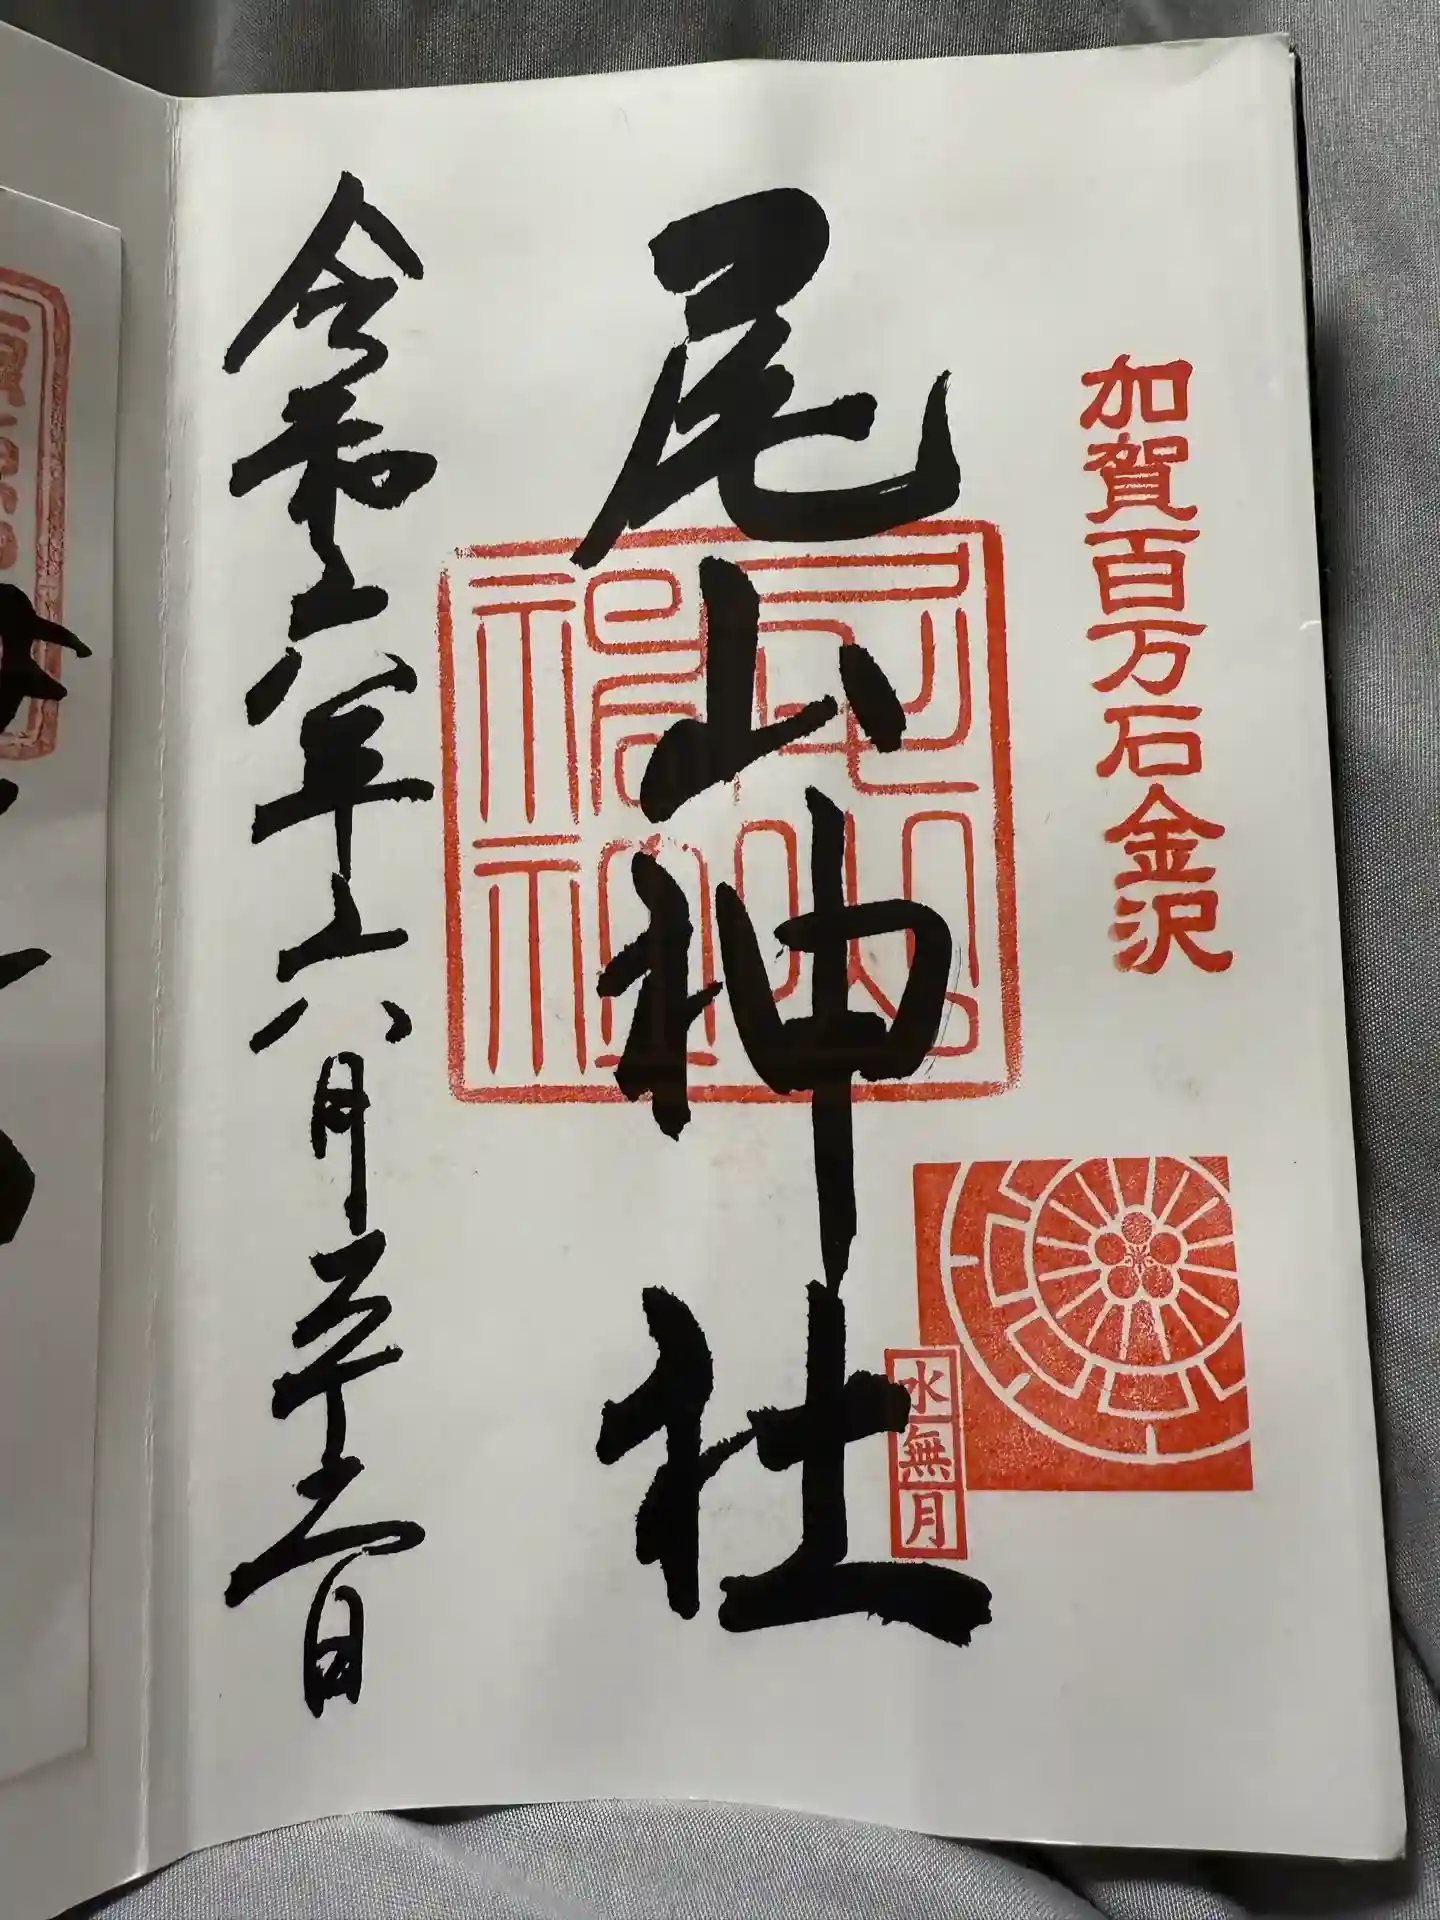 加賀百万石金沢
尾山神社
尾山神社
水無月
令和六年六月二十二日